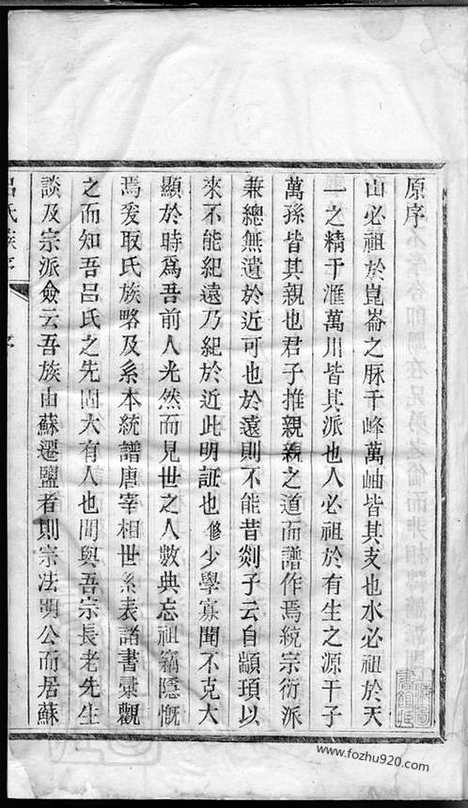 原序
山必祖於崑崙之脈千峰萬岫皆其支也水必祖於天
一之精千滙萬川皆其派也人必祖於有生之源千子
萬孫皆其親也君子推親親之道而譜作焉統宗衍派
兼總無遺於近可也於遠則不能昔剡子云自顓頊以
來不能紀遠乃紀於近此明証也修少學寡聞不克大
顯於時為吾前人光然而見世之人數典忘祖竊隱慨
焉爰取氏族略及系本統譜唐宰相世系表諸書彙觀
之而知吾呂氏之先固大有人也間與吾宗長老先生
談及宗派僉云吾族由蘇遷鹽者則宗法明公而居蘇
呂氏族譜
序
www.fozhu920.com